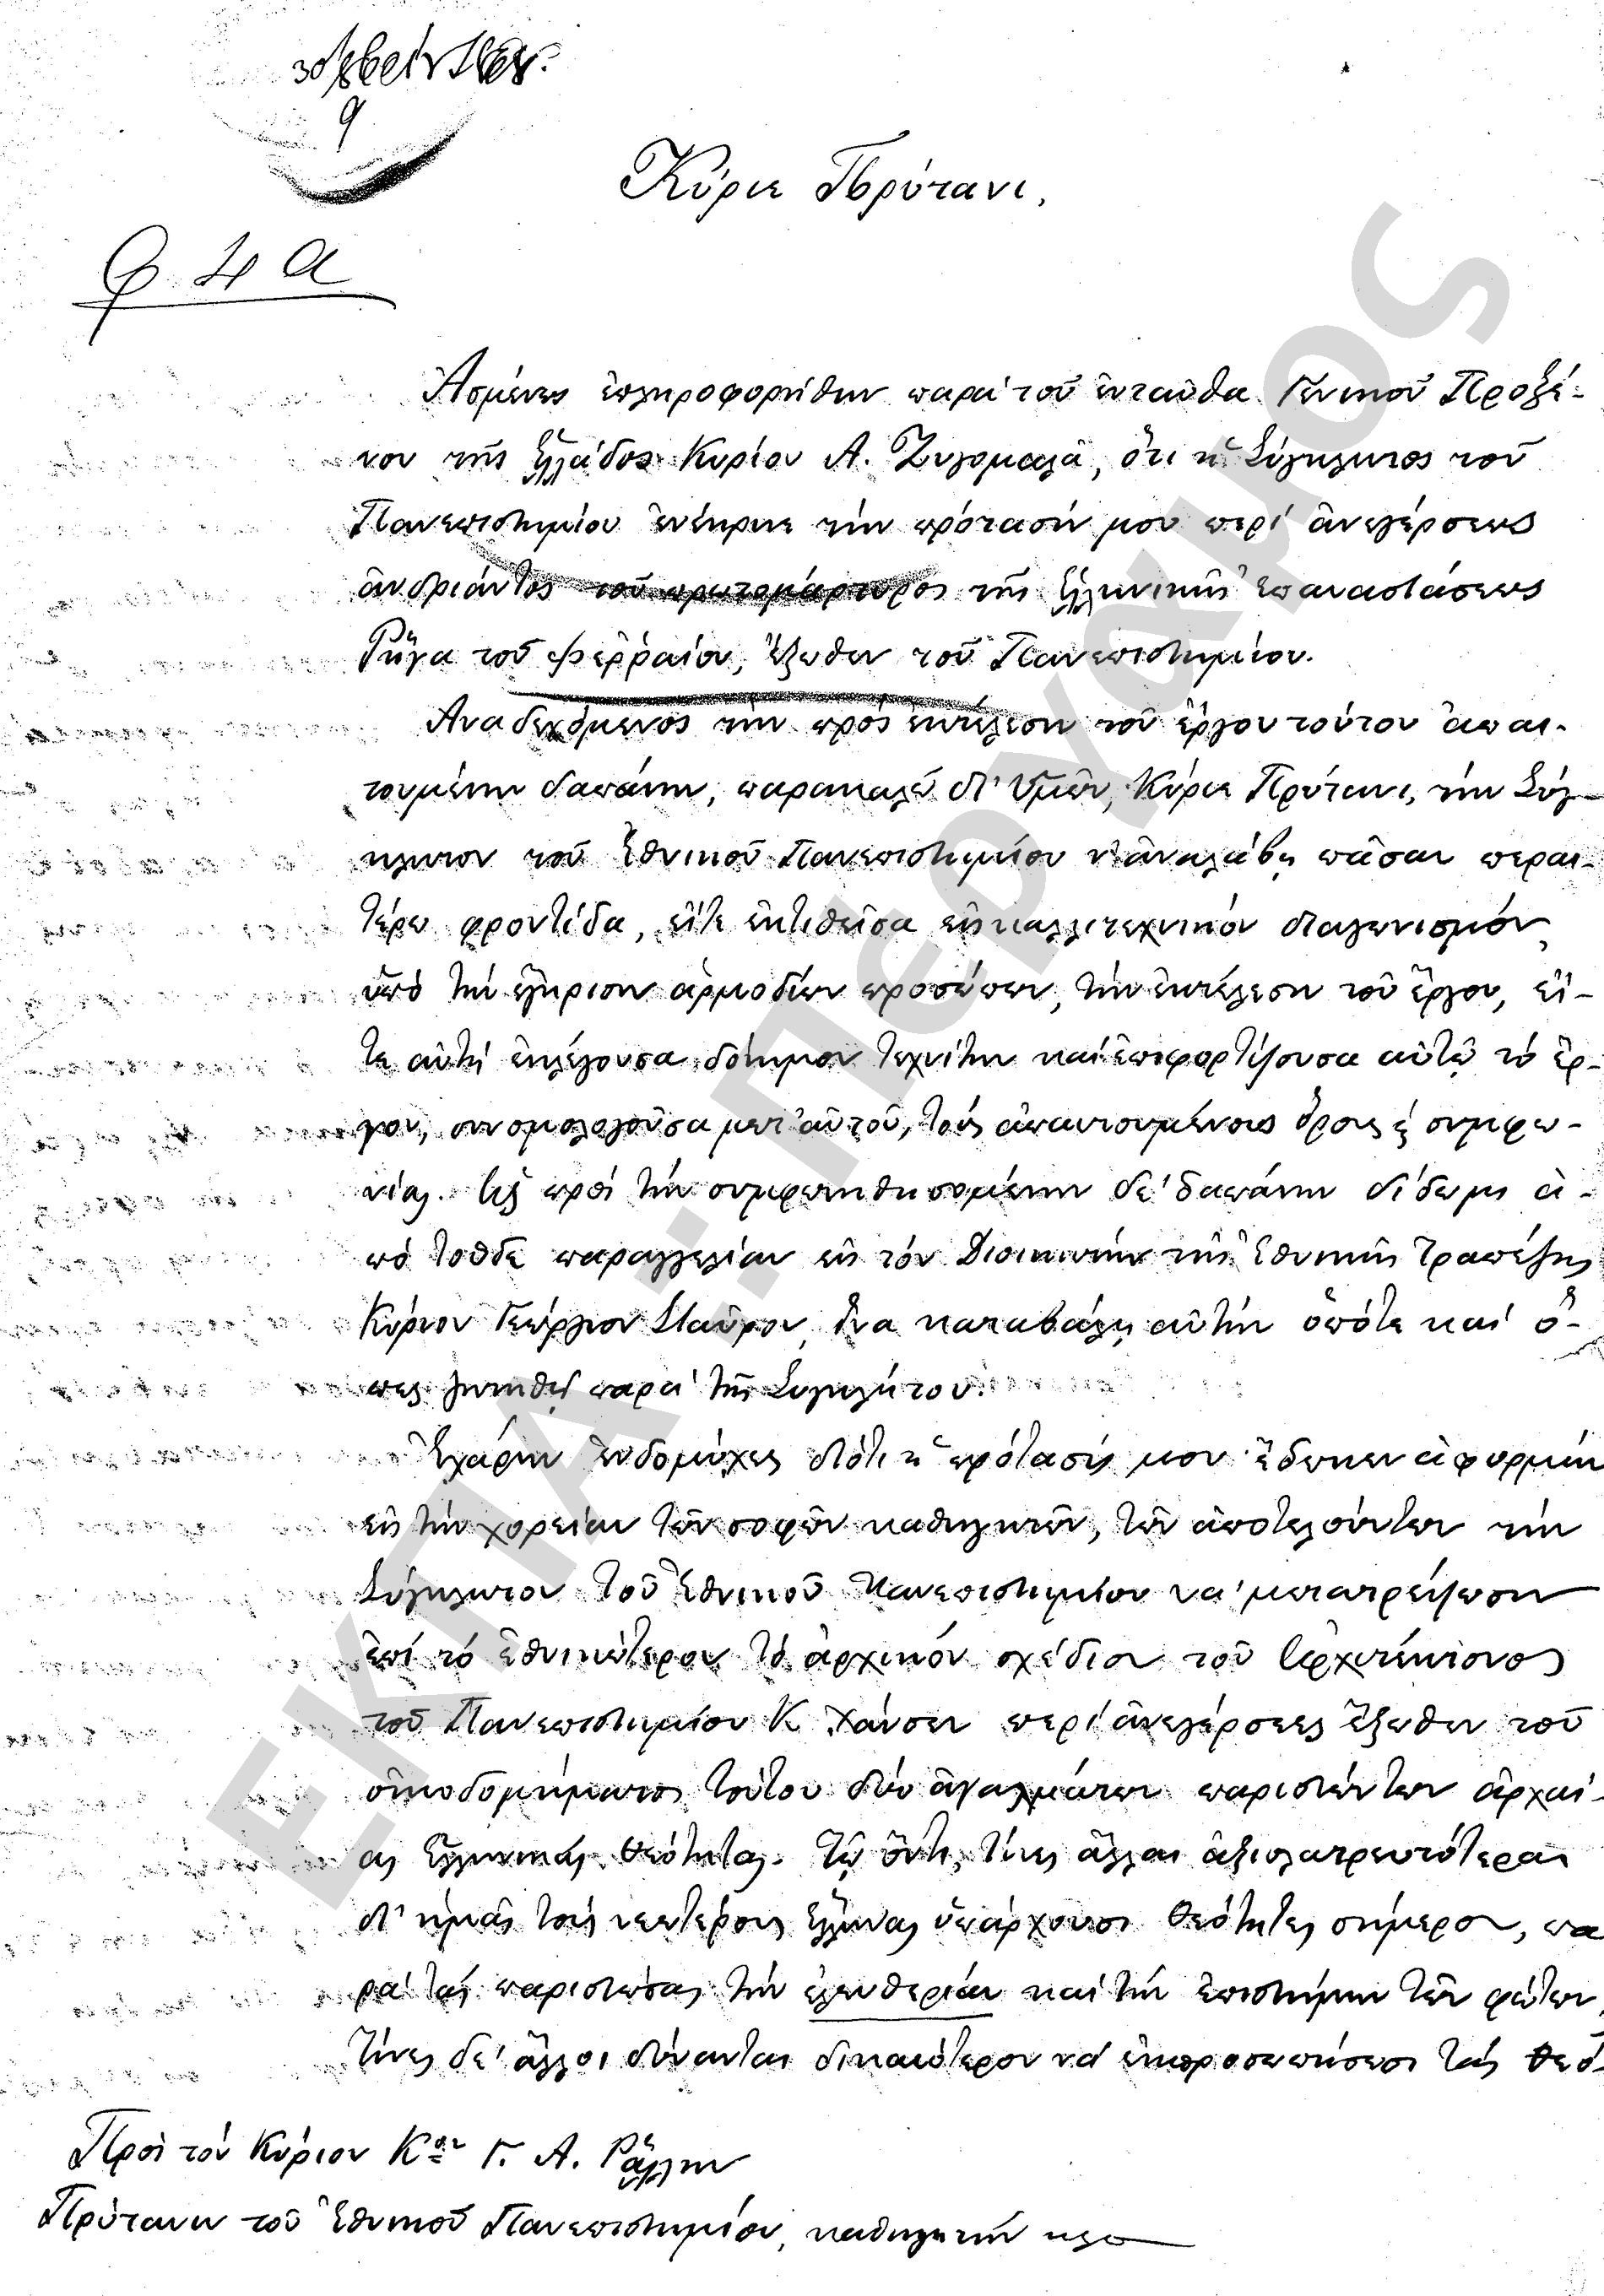 9
Κύριε Πρύτανι,
φ. 4 α
Ἀσμένως ἐπληροφορήθην παρὰ τοῦ ἐνταῦθα Γενικοῦ Προξέ-
νου τῆς Ἑλλάδος Κυρίου Α. Ζυγομαλᾶ, ὅτι ἡ Σύγκλητος τοῦ
Πανεπιστημίου ἐνέκρινε τὴν πρότασίν μου περὶ ἀνεγέρσεως
ἀνδριάντος τοῦ πρωτομάρτυρος τῆς Ἑλληνικῆς Ἐπαναστάσεως
Ῥήγα τοῦ Φεῤῥαίου, ἔξωθεν τοῦ Πανεπιστημίου.
Ἀναδεχόμενος τὴν πρὸς ἐκτέλεσιν τοῦ ἔργου τούτου ἀπαι-
τουμένην δαπάνην, παρακαλῶ δι' Ὑμῶν, Κύριε Πρύτανι, τὴν Σύγ-
κλητον τοῦ Ἐθνικοῦ Πανεπιστημίου ν' ἀναλάβῃ πᾶσαν περαι-
τέρω φροντίδα, εἴτε ἐκτιθεῖσα εἰς καλλιτεχνικὸν διαγωνισμὸν,
ὑπὸ τὴν ἔγκρισιν ἁρμοδίων προσώπων, τὴν ἐκτέλεσιν τοῦ ἔργου, εἴ-
τε αὐτὴ ἐκλέγουσα δόκιμον τεχνίτην καὶ ἐπιφορτίζουσα αὐτῷ τὸ ἔρ-
γον, συνομολογοῦσα μετ' αὐτοῦ, τοὺς ἀπαιτουμένους ὅρους ἢ συμφω-
νίας. Ὡς πρὸς τὴν συμφωνηθησομένην δὲ δαπάνην δίδωμι ἀ-
πὸ τοῦδε παραγγελίαν εἰς τὸν Διοικητὴν τῆς Ἐθνικῆς Τραπέζης
Κύριον Γεώργιον Σταῦρον, ἵνα καταβάλῃ αὐτὴν ὁπότε καὶ ὅ-
πως ζητηθῇ παρὰ τῆς Συγκλήτου.
Ἐχάρην ἐνδομύχως διότι ἡ πρότασίς μου ἔδωκεν ἀφορμὴν
εἰς τὴν χορείαν τῶν σοφῶν καθηγητῶν, τῶν ἀποτελούντων τὴν
Σύγκλητον τοῦ Ἐθνικοῦ Πανεπιστημίου νὰ μετατρέψωσιν
ἐπὶ τὸ ἐθνικώτερον τὸ ἀρχικὸν σχέδιον τοῦ Ἀρχιτέκτονος
τοῦ Πανεπιστημίου Κ. Χάνσεν περὶ ἀνεγέρσεως ἔξωθεν τοῦ
οἰκοδομήματος τούτου δύο ἀγαλμάτων παριστώντων ἀρχαί-
ας Ἑλληνικὰς θεότητας. Τῷ ὄντι, τίνες ἄλλαι ἀξιολατρευτότεραι
δι' ἡμᾶς τοὺς νεωτέρους Ἕλληνας ὑπάρχουσι θεότητες σήμερον, πα
ρὰ τὰς παριστώσας τὴν ἐλευθερίαν καὶ τὴν ἐπιστήμην τῶν φώτων,
τίνες δὲ ἄλλοι δύνανται δικαιότερον νὰ ἐκπροσωπήσωσι τὰς θεό-
Πρὸς τὸν Κύριον Κον Γ. Α. Ῥάλλην
Πρύτανιν τοῦ Ἐθνικοῦ Πανεπιστημίου, καθηγητὴν κλπ
ΕΚΠΑ - ΠΕΡΓΑΜΟΣ